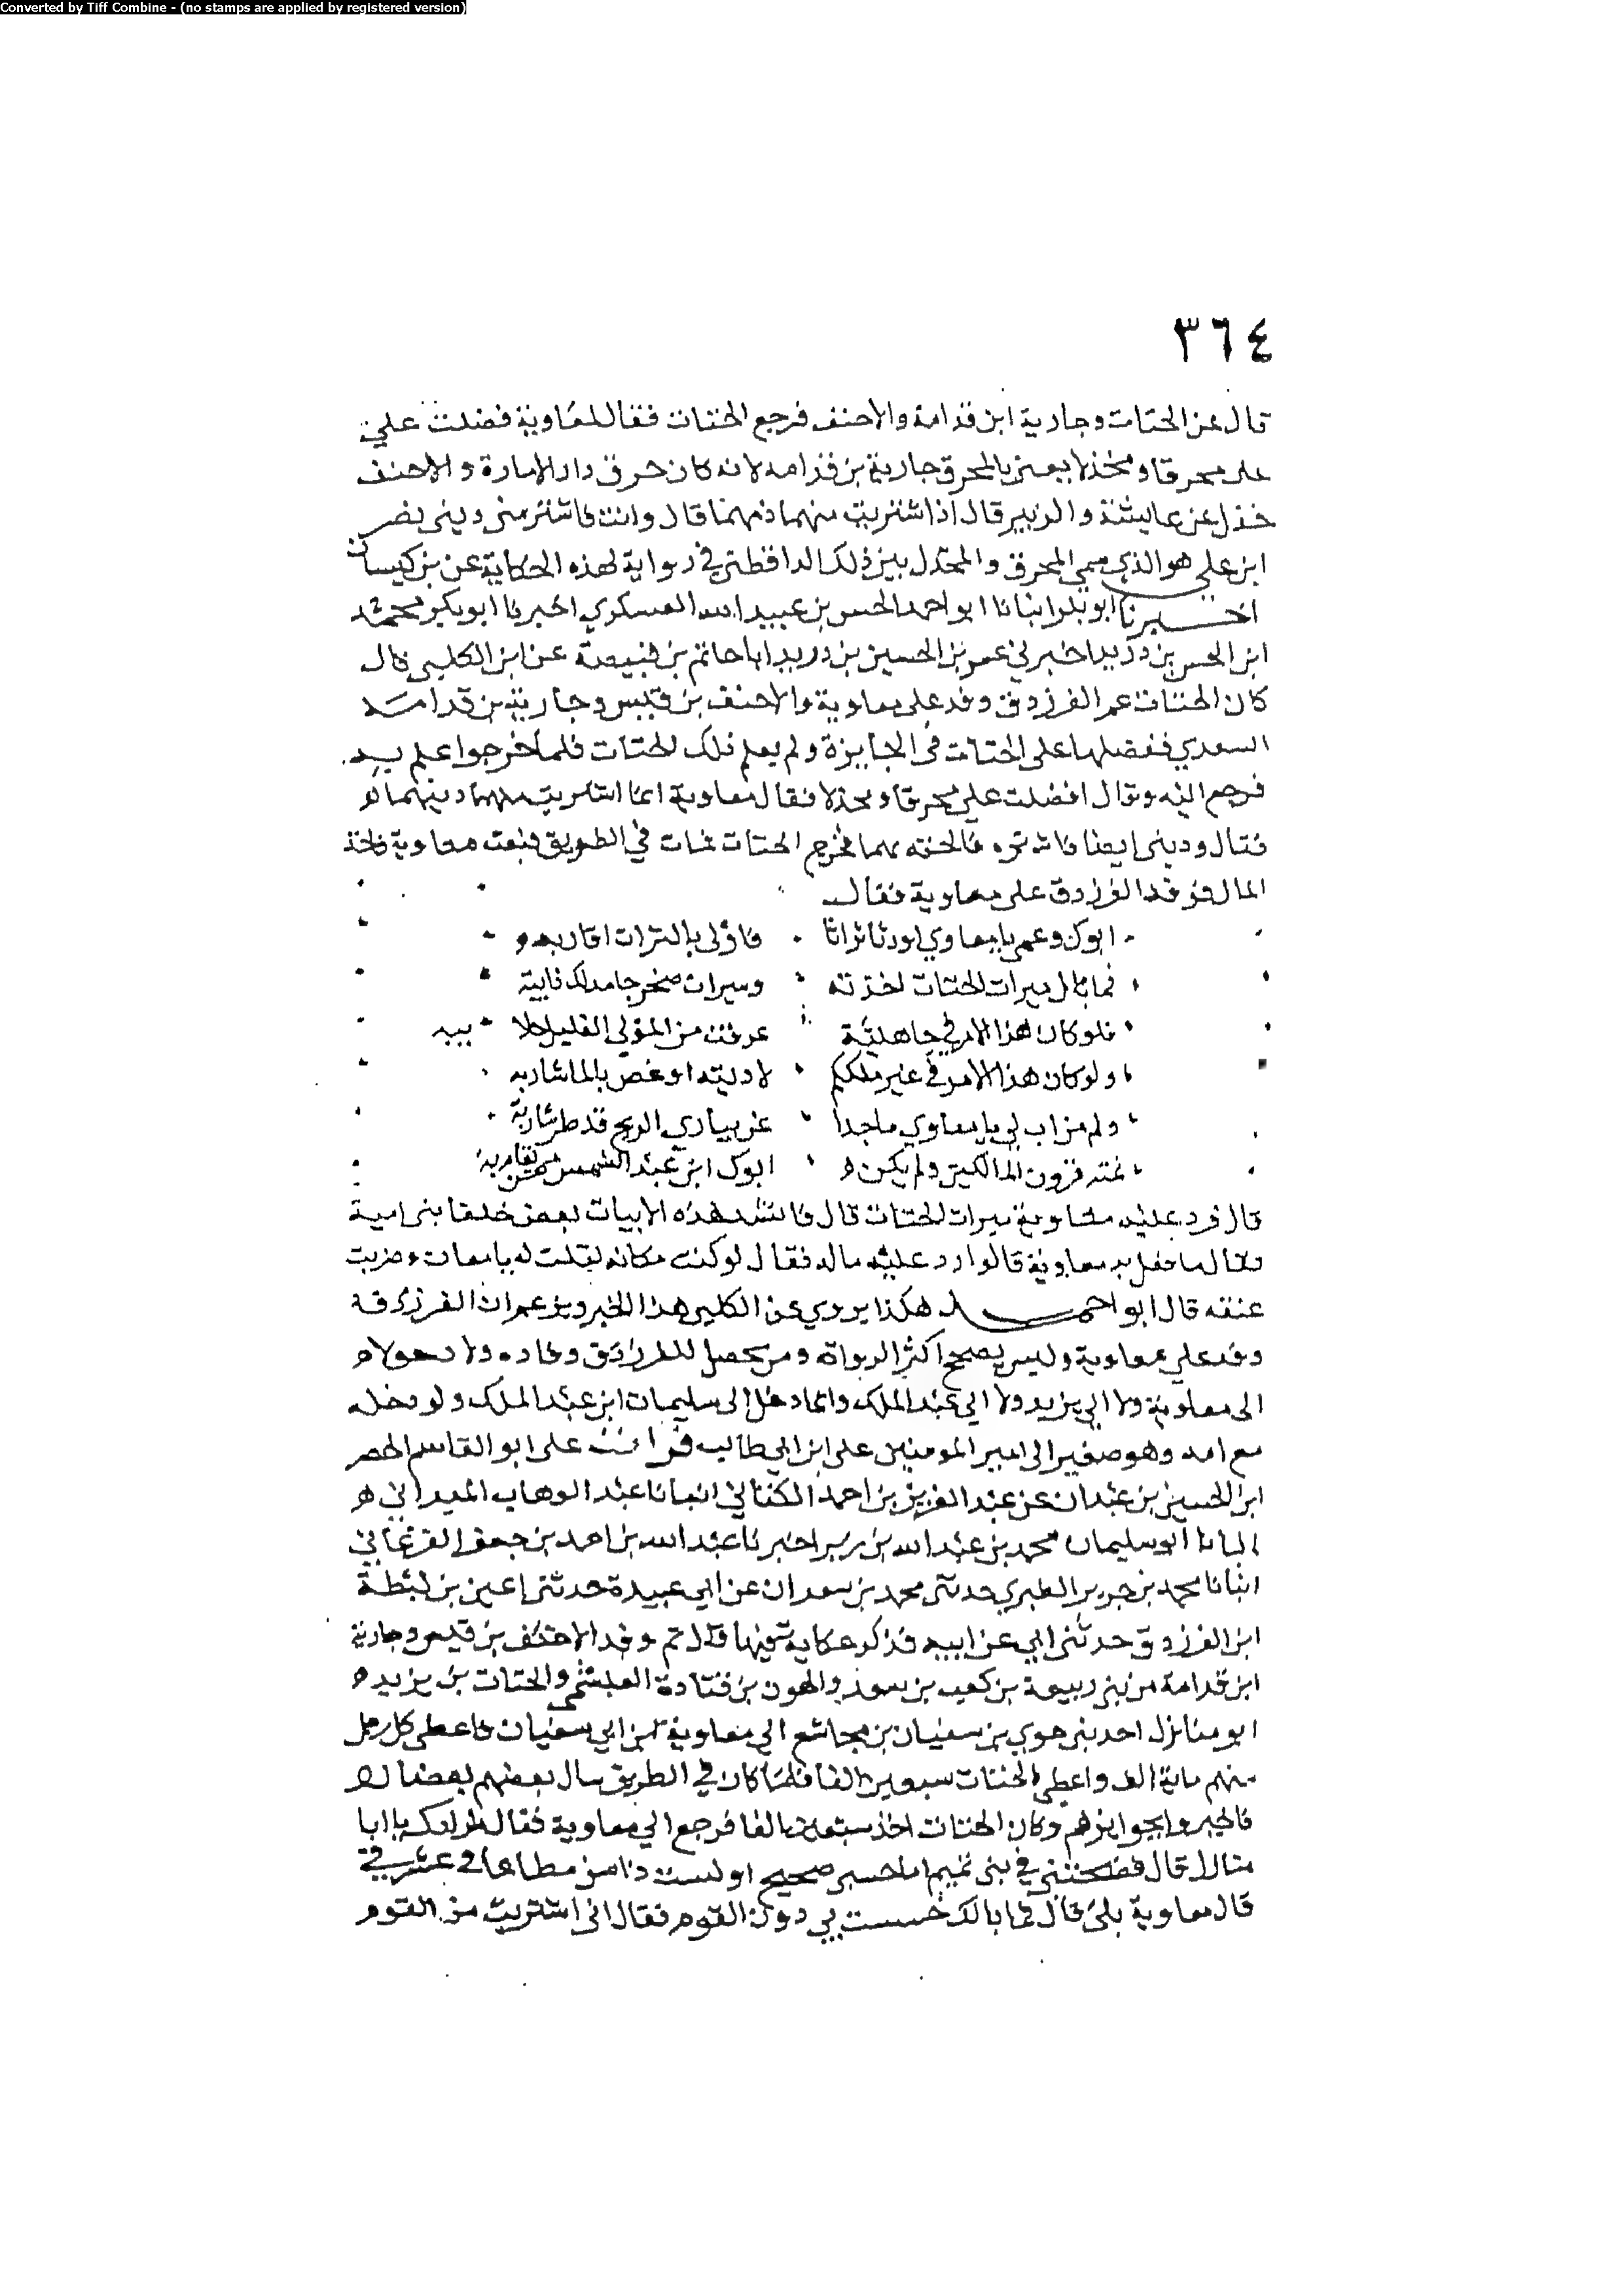 Converted by Tiff Combine - (no stamps are applied by registered version)
٣٦٤
قال عن الحتات وجارية ابن قدامة والاحنف فرجع الحتات فقال لمعاوية فضلت علي
على محرقا ومخذلا يعنى بالمحرق جارية بن قدامه لانه كان حرق دار الامارة والاحنف
خذل عن عايشة والزبير قال اذا اشتريت منهما ذمهما قال وانت فاشتر منى دينى نصر
ابن علي هو الذي سمى المحرق والمخذل بين ذلك الداقطنى في رواية لهذه الحكاية عن بن كيسان
اخبرنا ابو بكر انبانا ابو احمد الحسن بن عبيد الله العسكري اخبرنا ابو بكر محمد
ابن الحسن بن دريد اخبرني عمر بن الحسين بن دريد ابا حاتم بن قبيصة عن ابن الكلبى قال
كان الحتات عم الفرزدق وفد على معاوية والاحنف بن قيس وجارية بن قدامه
السعدي ففضلهما على الحتات فى الجايزة ولم يعلم ذلك الحتات فلما خرجوا علم به
فرجع اليه وقال افضلت علي محرقا ومخذلا فقال معاوية انما اشتريت منهما دينهما
فقال ودينى ايضا فاشتره فالحقه بهما فخرج الحتات فمات في الطريق فبعث معاوية فاخذ
المال فوفد الفرزدق على معاوية فقال
ابوك وعمى يا معاوي اورثا تراثا فاولى بالتراث اقاربه
فما بال ميراث الحتات اخذته وميراث صخر جامد لك ذايبه
فلو كان هذا الامر في جاهلية عرفت من المولى القليل حلايبه
ولو كان هذا الامر في غير ملككم لاديته او غص بالما شاربه
ولم من اب لي يا معاوي ماجدا غر يباري الريح قد طر شاربه
نمته قرون المالكين ولم يكن ابوك ابن عبد الشمس ممن تقاربه
قال فرد عليه معاوية ميراث الحتات قال فانشد هذه الابيات بعض خلفا بنى امية
فقال ما فعل به معاوية قالوا رد عليه ماله فقال لو كنت مكانه لقلت له يا مصان وضربت
عنقه قال ابو احمد هكذا يروي عن الكلبي هذا الخبر ويزعم ان الفرزدق
وفد على معاوية وليس يصحح اكثر الرواة ومن يحصل للفرزدق وفاده ولا دخولا
الى معاوية ولا الى يزيد ولا الى عبد الملك وانما دخل الى سليمان ابن عبد الملك ولو دخله
مع امه وهو صغير الى امير المومنين على ابن ابي طالب قرات على ابو القاسم الخضر
ابن الحسين بن عبدان عن عبد العزيز بن احمد الكتاني انبانا عبد الوهاب الميداني
انبانا ابو سليمان محمد بن عبد الله بن زبر اخبرنا عبد الله بن احمد بن جعفر الفرغاني
انبانا محمد بن جرير الطبري حدثنى محمد بن سعدان عن ابي عبيدة حدثنى اعين بن لبطة
ابن الفرزدق حدثنى ابي عن ابيه فذكر حكاية فيها قال ثم وفد الاحنف بن قيس وجارية
ابن قدامة من بنى ربيعة بن كعب بن سعد والجون بن قتادة العبشمي والحتات بن يزيد
ابو منازل احد بنى حوي بن سفيان بن مجاشع الي معاوية بن ابي سفيان فاعطى كل رجل
منهم ماية الف واعطى الحتات سبعين الفا فلما كان في الطريق سال بعضهم بعضا
فاخبروا بجوايزهم وكان الحتات اخذ سبعين الفا فرجع الي معاوية فقال ما ردك يا ابا
منازل قال فضحتنى في بنى تميم اما حسبى صحيح اولست ذا سن مطاعا في عشيرتي
قال معاوية بلى قال فما بالك خسست بي دون القوم فقال انى اشتريت من القوم